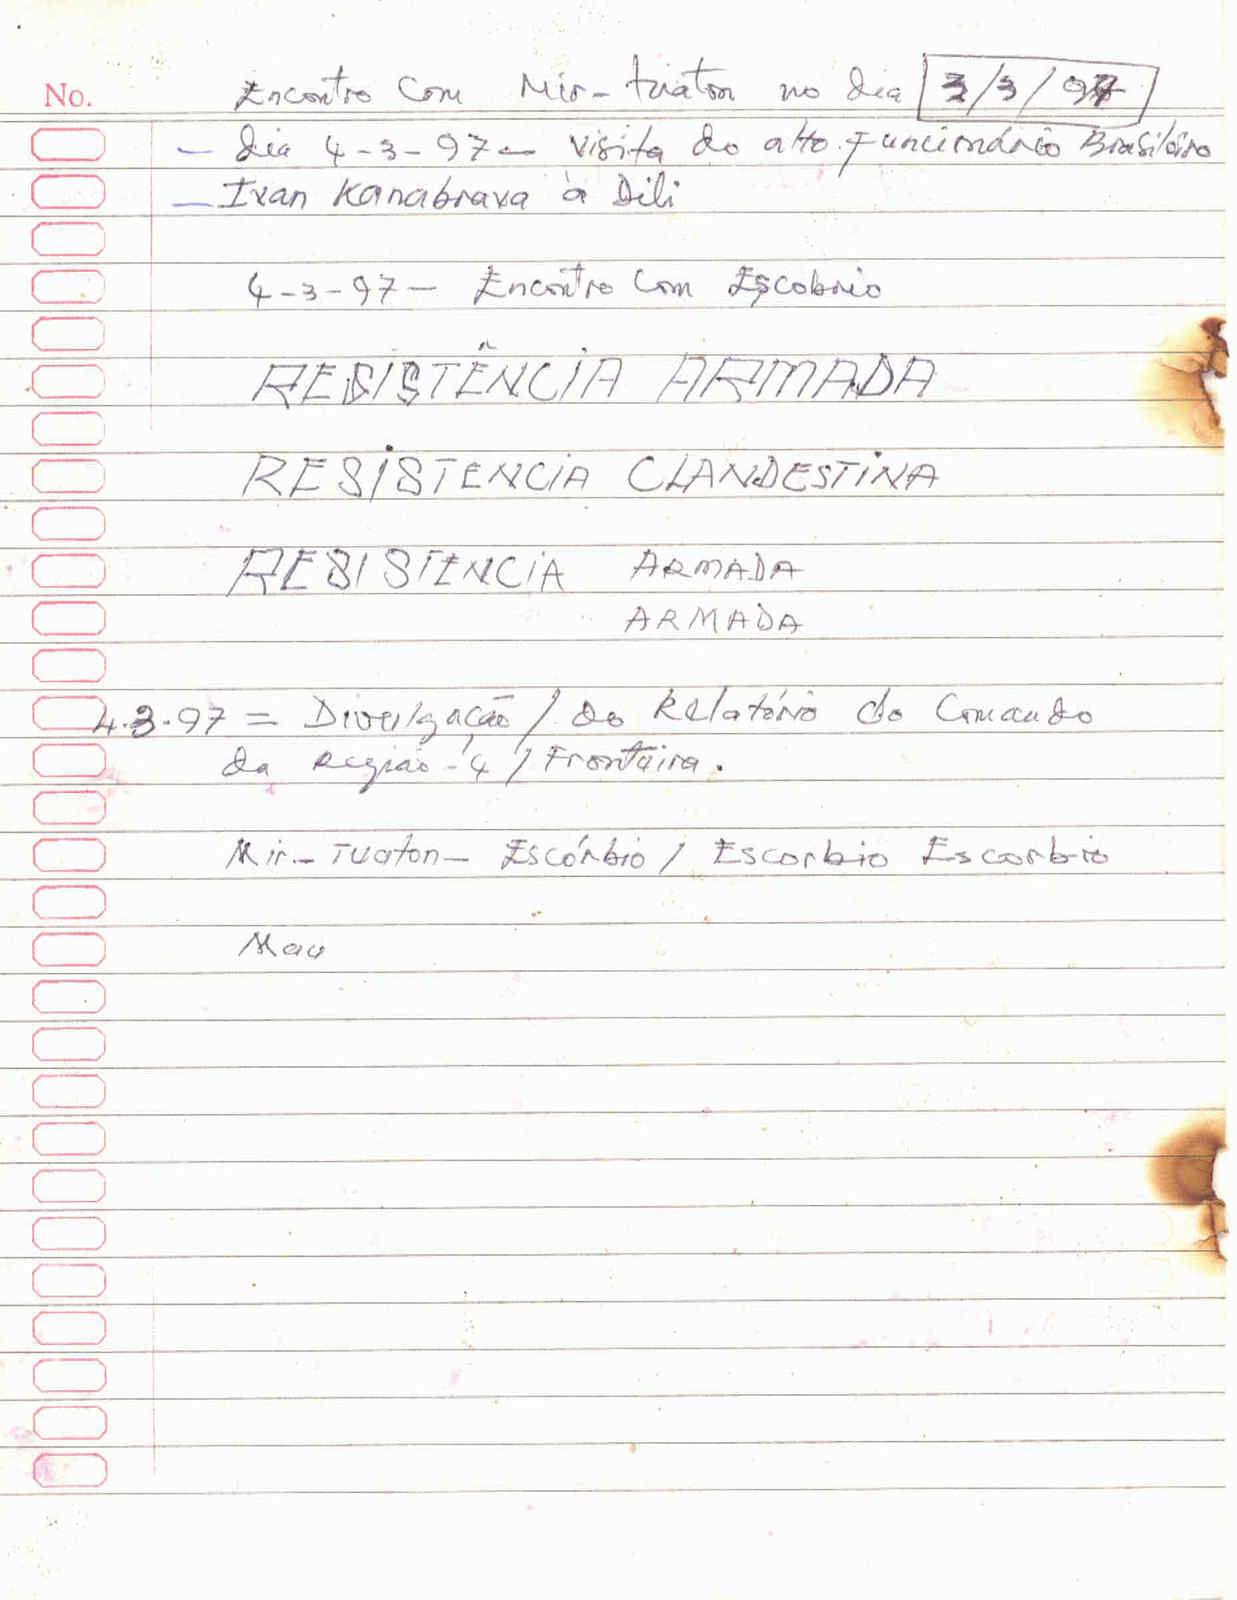 No.
Encontro Com Mir-tuaton no dia 3/3/97
- dia 4-3-97 - Visita do alto funcionário Brasileiro
- Ivan Kanabrava à Dili
4-3-97 - Encontro Com Escobrio
RESISTÊNCIA ARMADA
RESISTENCIA CLANDESTINA
RESISTENCIA ARMADA
ARMADA
4.3.97 = Divulgação / do Relatório do Comando
da Região-4 / Frontaira.
Mir-Tuaton- Escórbio / Escorbio Escorbio
Mau